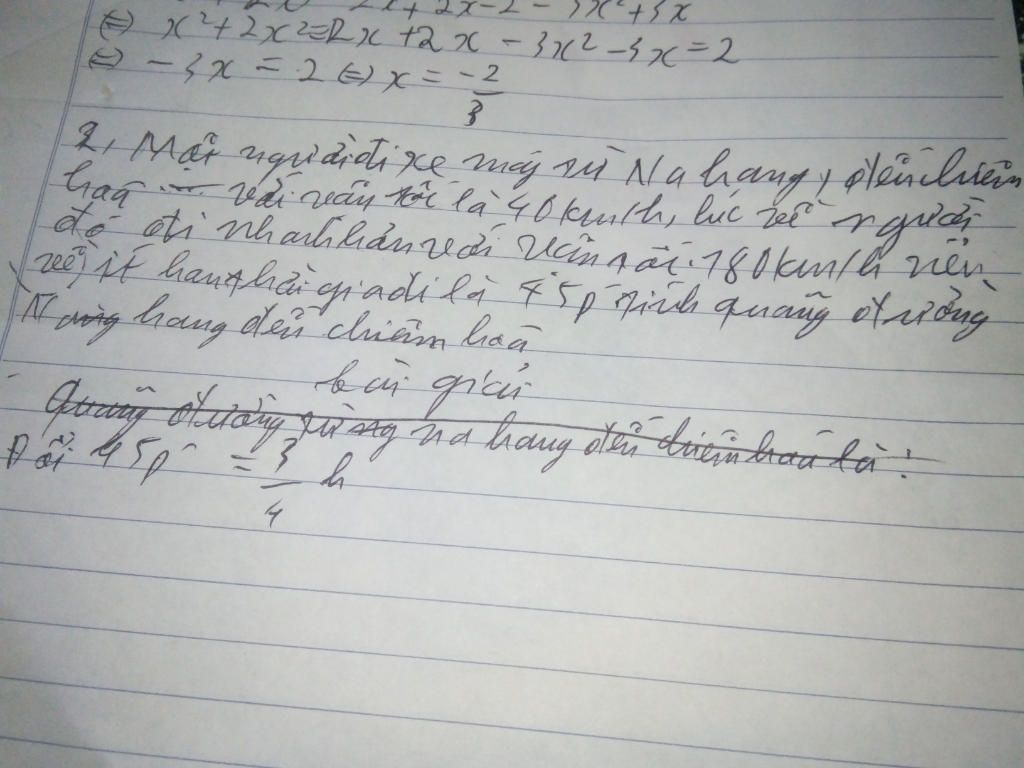 2x + 2x - 2 - 3x² + 3x
⇔ x² + 2x² = 2x + 2x - 3x² - 3x = 2
⇔ - 3x = 2 ⇔ x = -2/3
2, Một người đi xe máy từ Na hang, đến chiêm
hoá với vận tốc là 40km/h, lúc về người
đó đi nhanh hơn với vận tốc 180km/h nên
về ít hơn thời gia đi là 45p tính quãng đường
Na hang đến chiêm hoá
bài giải
Quãng đường từ na hang đến chiêm hoá là :
Đổi 45p = 3/4 h